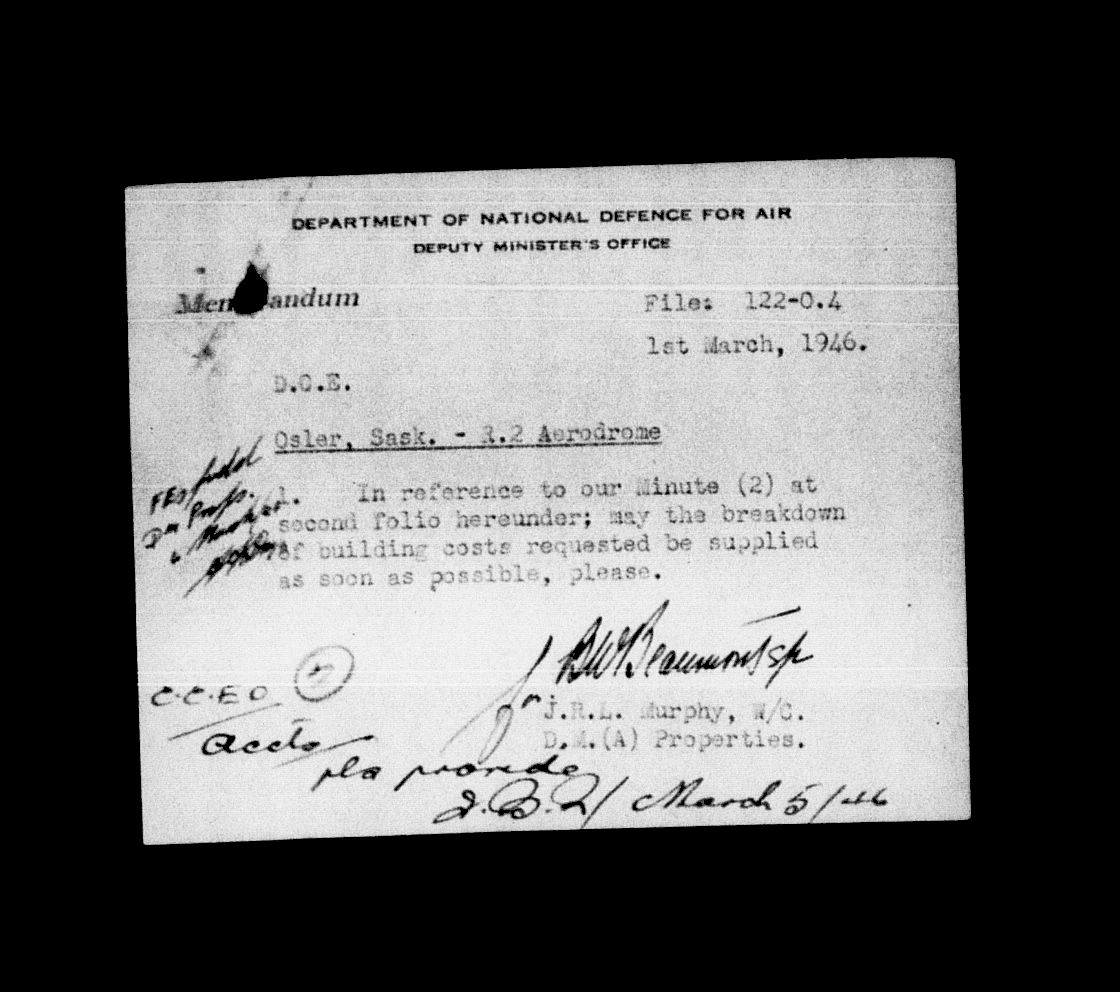 DEPARTMENT OF NATIONAL DEFENCE FOR AIR
DEPUTY MINISTER'S OFFICE
Memorandum
File: 122-O.4
1st March, 1946.
D.O.E.
Osler, Sask. - R.2 Aerodrome
1. In reference to our Minute (2) at
second folio hereunder; may the breakdown
of building costs requested be supplied
as soon as possible, please.
BW Beaumont S/L
for
J.R.L. Murphy, W/C.
D.M.(A) Properties.
C.C.E.O
Accts
pls provide
March 5/46